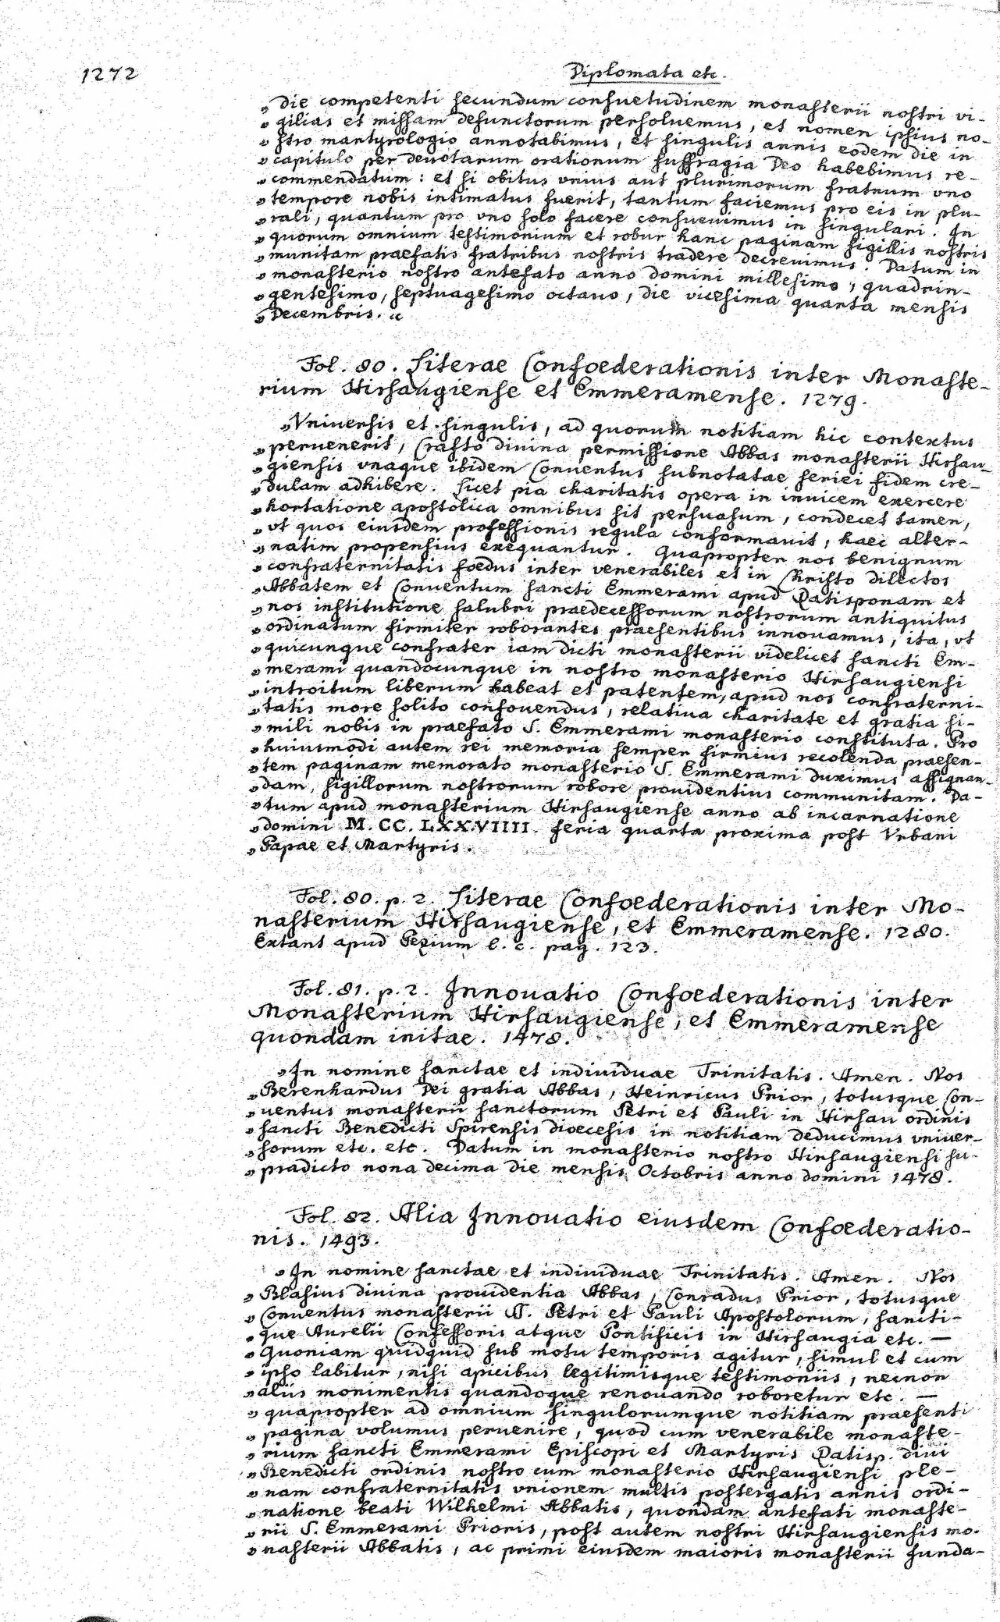 1272
Diplomata etc.
„die competenti secundum consuetudinem monasterii nostri vi-
„gilias et missam defunctorum persoluemus, et nomen ipsius no-
„stro martyrologio annotabimus, et singulis annis eodem die in
„capitulo per deuotarum orationum suffragia Deo habebimus re-
„commendatum: et si obitus vnius aut plurimorum fratrum vno
„tempore nobis intimatus fuerit, tantum faciemus pro eis in plu-
„rali, quantum pro vno solo facere consueuimus in singulari. In
„quorum omnium testimonium et robur hanc paginam sigillis nostris
„munitam praefatis fratribus nostris tradere decreuimus. Datum in
„monasterio nostro antefato anno domini millesimo, quadrin-
„gentesimo, septuagesimo octauo, die vicesima quarta mensis
„Decembris. „
Fol. 80. Literae Confoederationis inter Monaste-
rium Hirsaugiense et Emmeramense. 1279.
„Vniuersis et singulis, ad quorum notitiam hic contextus
„peruenerit, Crafto diuina permissione Abbas monasterii Hirsau-
„giensis vnaque ibidem Conuentus subnotatae seriei fidem cre-
„dulam adhibere. Licet pia charitatis opera in inuicem exercere
„hortatione apostolica omnibus sit persuasum, condecet tamen,
„vt quos eiusdem professionis regula conformauit, haec alter-
„natim propensius exequantur. Quapropter nos benignum
„confraternitatis foedus inter venerabiles et in Christo dilectos
„Abbatem et Conuentum sancti Emmerami apud Ratisponam et
„nos institutione salubri praedecessorum nostrorum antiquitus
„ordinatum firmiter roborantes praesentibus innouamus, ita, vt
„quicunque confrater iam dicti monasterii videlicet sancti Em-
„merami quandocunque in nostro monasterio Hirsaugiensi
„introitum liberum habeat et patentem, apud nos confraterni-
„tatis more solito confouendus, relatiua charitate et gratia si-
„mili nobis in praefato S. Emmerami monasterio constituta. Pro
„huiusmodi autem rei memoria semper firmius recolenda praesen-
„tem paginam memorato monasterio S. Emmerami duximus assignan-
„dam, sigillorum nostrorum robore prouidentius communitam. Da-
„tum apud monasterium Hirsaugiense anno ab incarnatione
„domini M. CC. LXXVIIII. feria quarta proxima post Vrbani
„Papae et Martyris.
Fol. 80. p. 2. Literae Confoederationis inter Mo-
nasterium Hirsaugiense, et Emmeramense. 1280.
Extant apud Pezium l. c. pag. 123.
Fol. 81. p. 2. Innouatio Confoederationis inter
Monasterium Hirsaugiense, et Emmeramense
quondam initae. 1478.
„In nomine sanctae et indiuiduae Trinitatis. Amen. Nos
„Berenhardus Dei gratia Abbas, Heinricus Prior, totusque Con-
„uentus monasterii sanctorum Petri et Pauli in Hirsau ordinis
„sancti Benedicti Spirensis dioecesis in notitiam deducimus vniuer-
„sorum etc. etc. Datum in monasterio nostro Hirsaugiensi su-
„pradicto nona decima die mensis Octobris anno domini 1478.
Fol. 82. Alia Innouatio eiusdem Confoederatio-
nis. 1493.
„In nomine sanctae et indiuiduae Trinitatis. Amen. Nos
„Blasius diuina prouidentia Abbas, Conradus Prior, totusque
„Conuentus monasterii S. Petri et Pauli Apostolorum, sancti-
„que Aurelii Confessoris atque Pontificis in Hirsaugia etc. —
„Quoniam quidquid sub motu temporis agitur, simul et cum
„ipso labitur, nisi apicibus legitimisque testimoniis, necnon
„aliis monimentis quandoque renouando roboretur etc. —
„quapropter ad omnium singulorumque notitiam praesenti
„pagina volumus peruenire, quod cum venerabile monaste-
„rium sancti Emmerami Episcopi et Martyris Ratisp. diui
„Benedicti ordinis nostro cum monasterio Hirsaugiensi ple-
„nam confraternitatis vnionem multis postergatis annis ordi-
„natione beati Wilhelmi Abbatis, quondam antefati monaste-
„rii S. Emmerami Prioris, post autem nostri Hirsaugiensis mo-
„nasterii Abbatis, ac primi eiusdem maioris monasterii funda-